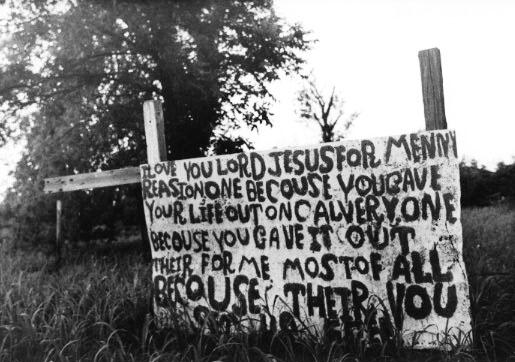 I LOVE YOU LORD JESUS FOR MENNY
REASION ONE BECOUSE YOU GAVE
YOUR LIFE OUT ON CALVERY. ONE
BECOUSE YOU GAVE IT OUT
THEIR FOR ME MOST OF ALL
BECOUSE THEIR YOU